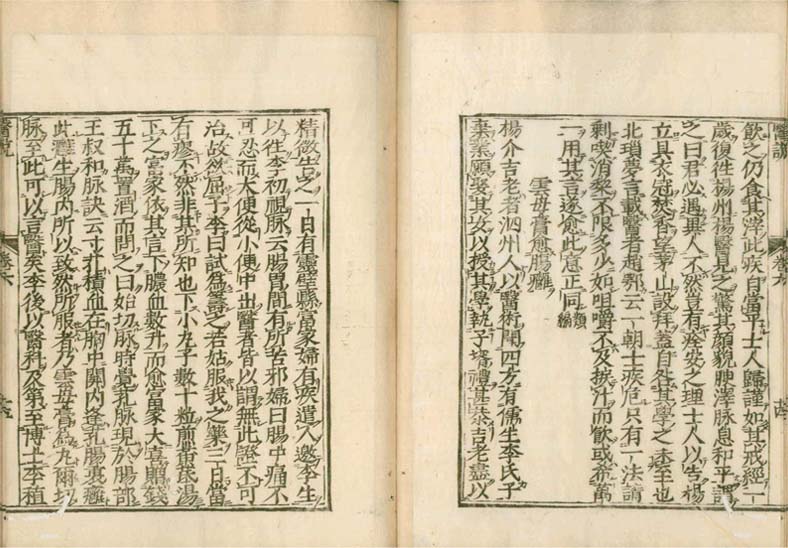 醫說
飲之仍食其滓此疾自當平士人歸謹如其戒經一
歲復往楊州楊醫見之驚其顏貌腴澤脉息和平謂
之曰君必遇異人不然豈有痊安之理士人以告楊
立具衣冠焚香望茅山設拜蓋自咎其學之未至也
北瑣夢言載醫者趙鄂云一朝士疾危只有一法請
剩喫消梨不限多少如咀嚼不及捩汁而飲或希萬
一用其言遂愈此意正同 類編
雲母膏愈腸癰
楊介吉老者泗州人以醫術聞四方有儒生李氏子
棄業願娶其女以授其學執子壻禮甚恭吉老盡以
卷六
精微告之一日有靈壁縣富家婦有疾遣人邀李生
以往李初視脉云腸胃間有所苦邪婦曰腸中痛不
可忍而大便從小便中出醫者皆以謂無此證不可
治故然屈子李曰試為籌之若姑服我之藥三日當
有瘳不然非其所知也下小丸子數十粒煎黃芪湯
下之富家依其言下膿血數升而愈富家大喜贈錢
五十萬置酒而問之曰始切脉時覺芤脉現於腸部
王叔和脉訣云寸芤積血在胸中關內逢芤腸裏癰
此癰生腸內所以致然所服者乃雲母膏為丸爾切
脉至此可以言醫矣李後以醫科及第至博士李植
醫說
卷六